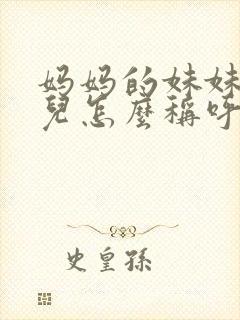 妈妈的妹妹
兒怎麼稱呼
史皇孫